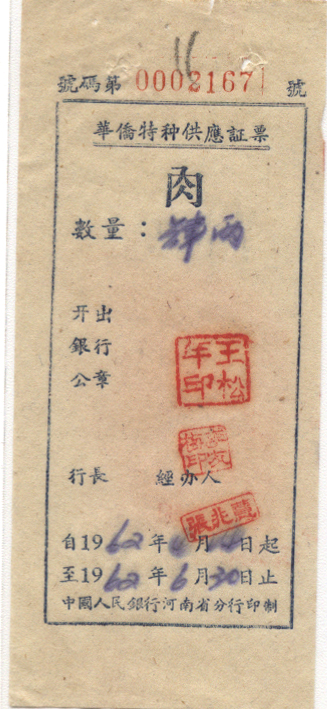 11
號碼第 0002167 號
華僑特种供應証票
肉
数量：肆两
开出
銀行
公章
王松年印
行長 經办人
張兆贇
自1962年4月14日起
至1962年6月30日止
中國人民銀行河南省分行印制